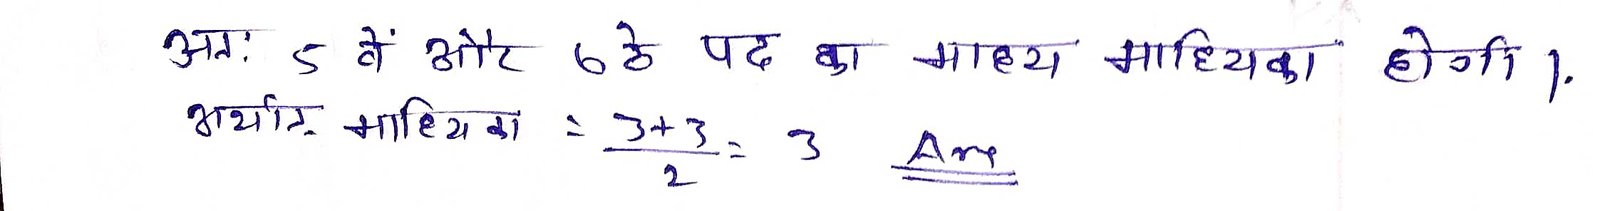 अतः 5 वें और 6 ठे पद का माध्य माध्यिका होगी ।.
अर्थात् माध्यिका = \frac{3+3}{2} = 3 Ans